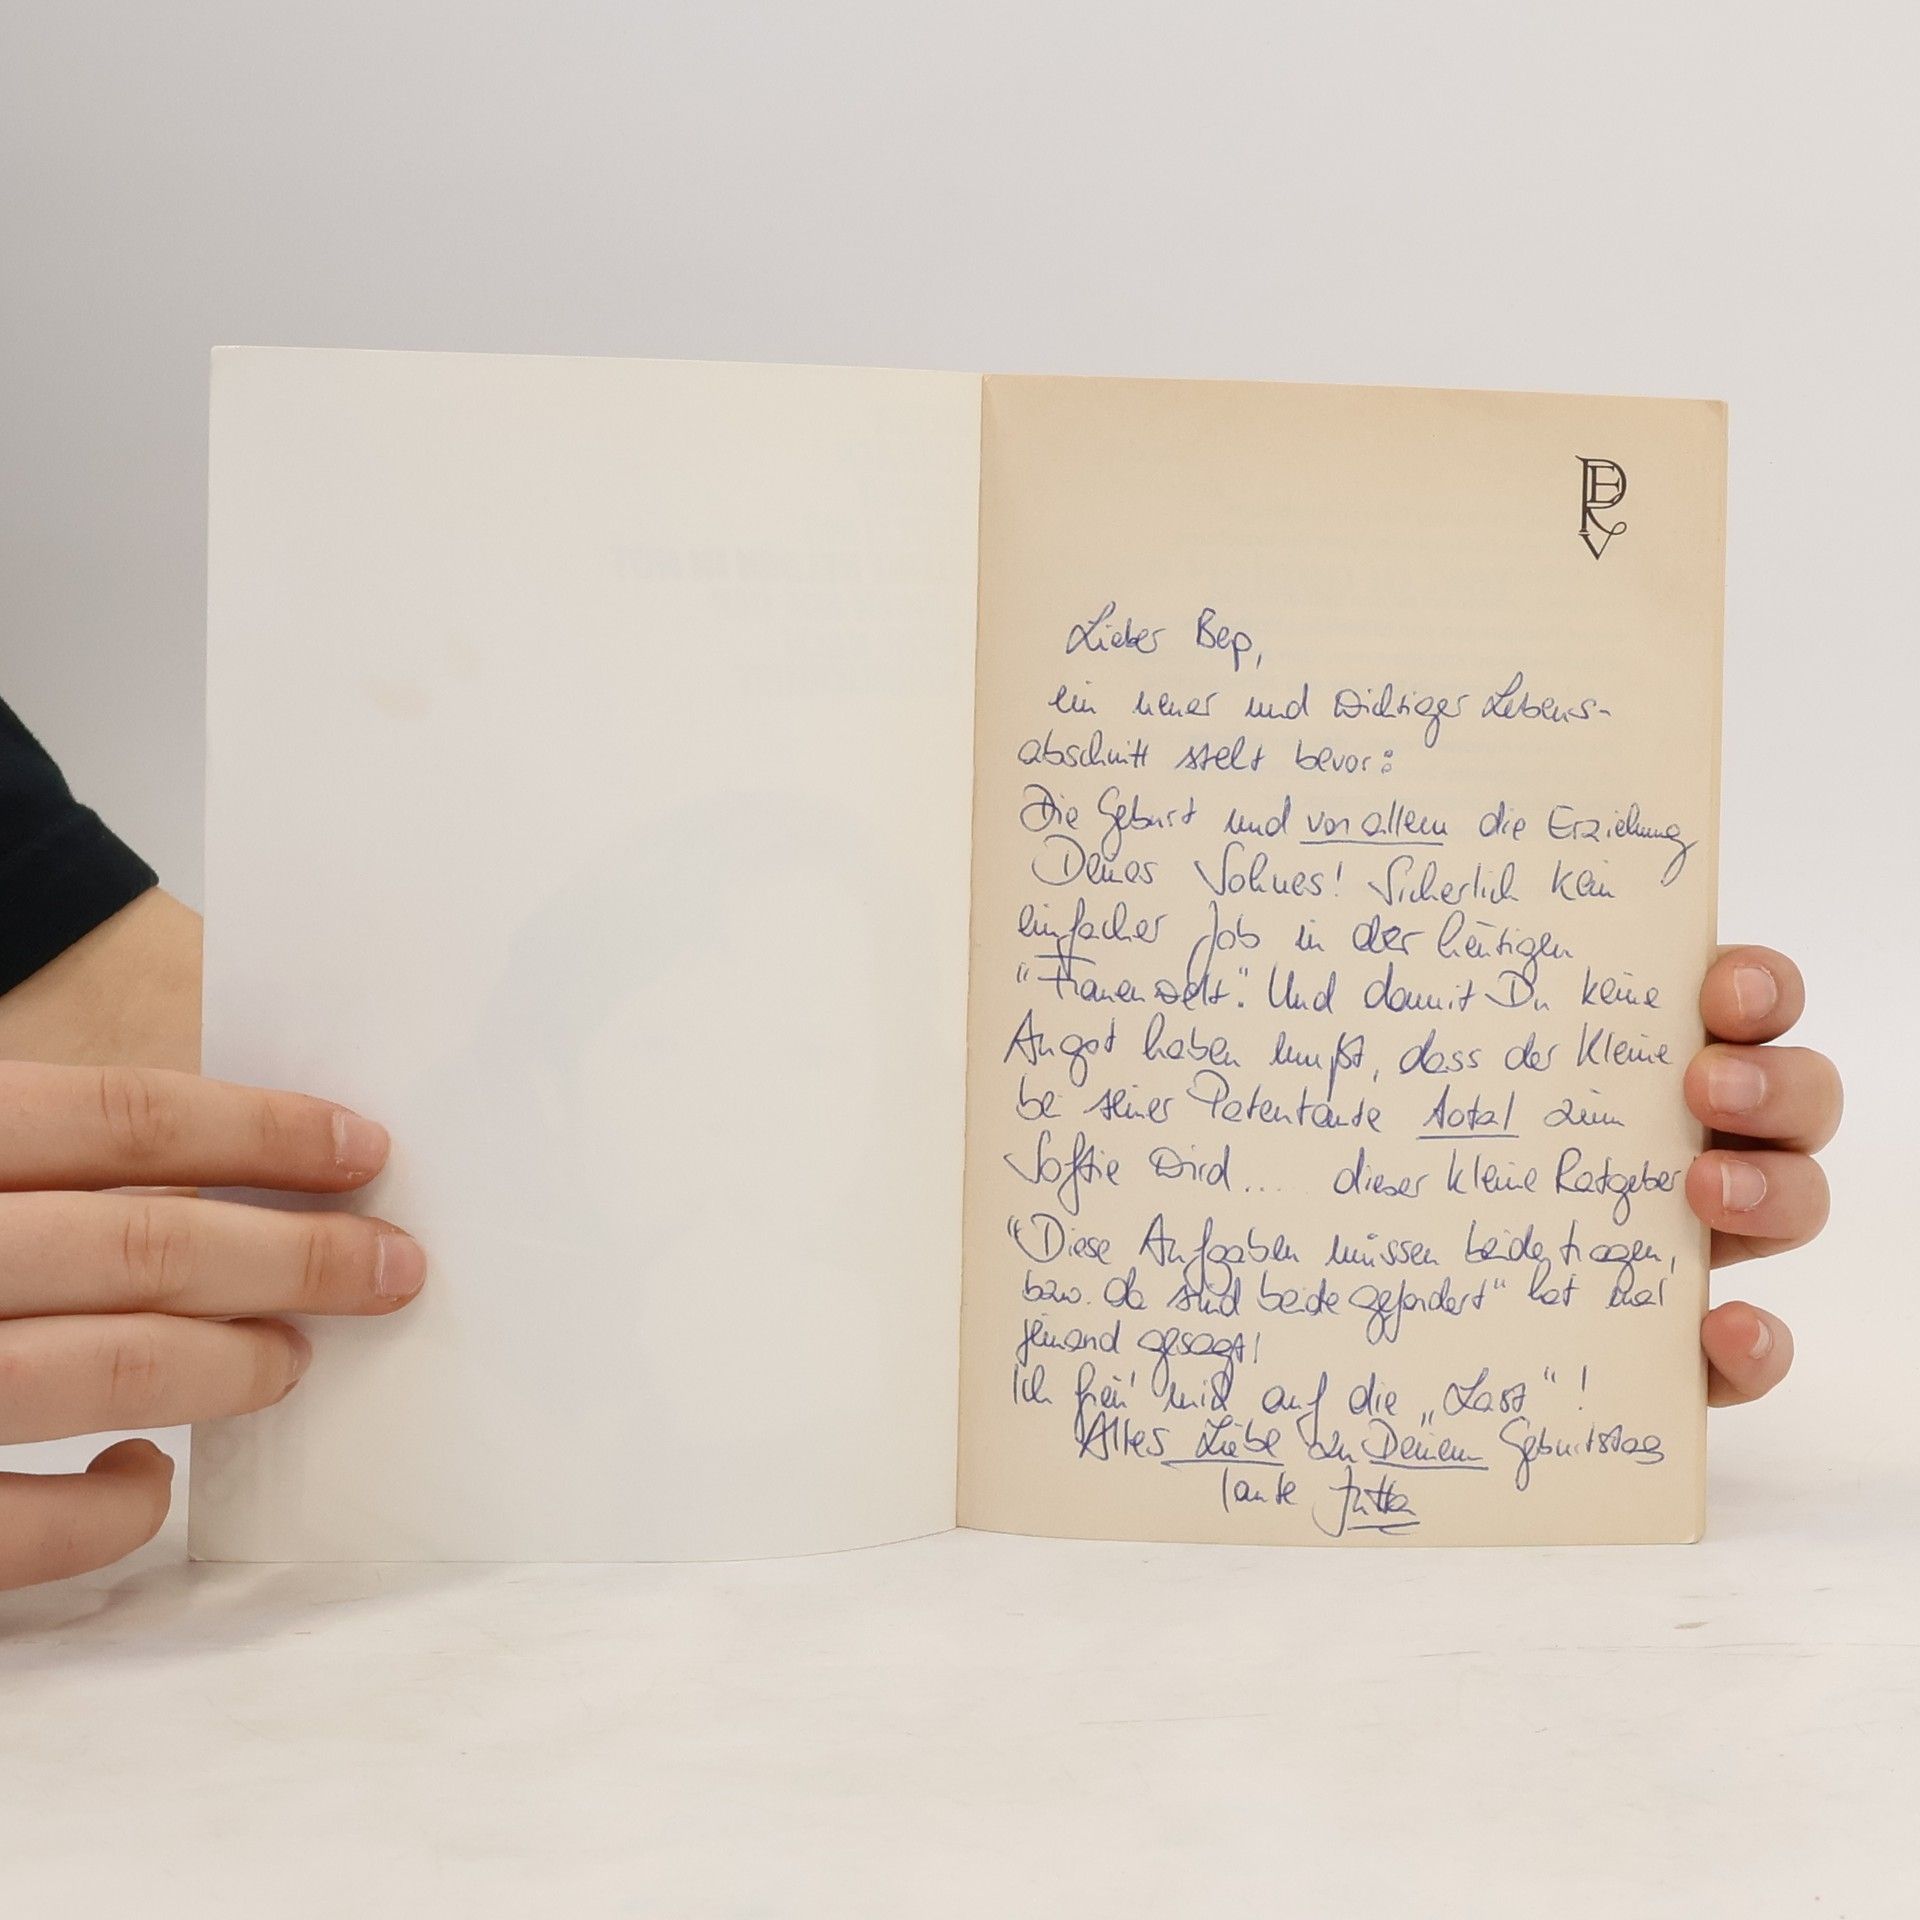 PERV
Lieber Bep,
ein neuer und wichtiger Lebens-
abschnitt steht bevor:
Die Geburt und vor allem die Erziehung
Deines Sohnes! Sicherlich kein
einfacher Job in der heutigen
"Frauenwelt". Und damit Du keine
Angst haben mußt, dass der Kleine
bei seiner Patentante total zum
Softie wird.... dieser kleine Ratgeber
"Diese Aufgaben müssen beide tragen,
bzw. da sind beide gefordert" hat mal
jemand gesagt!
Ich freu' mich auf die „Last"!
Alles Liebe zu Deinem Geburtstag
Tante Jutta